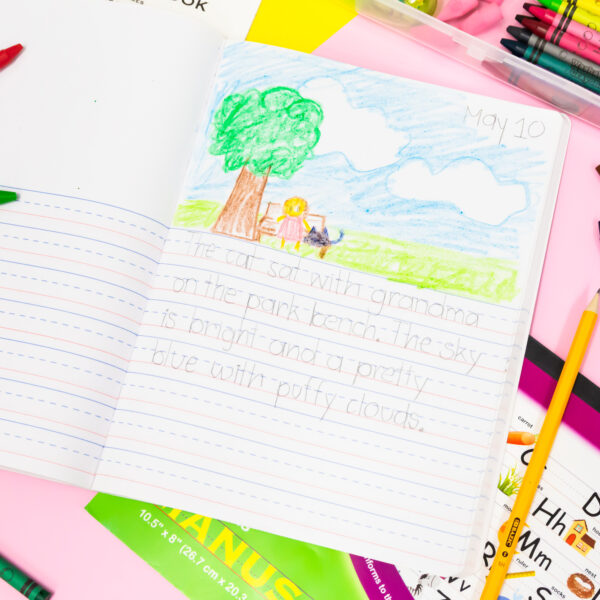 OOK
May 10
The cat sat with grandma
on the park bench. The sky
is bright and a pretty
blue with puffy clouds.
10.5" x 8" (26.7 cm x 20.3
carrot
Hh
Mm
ruler
nest